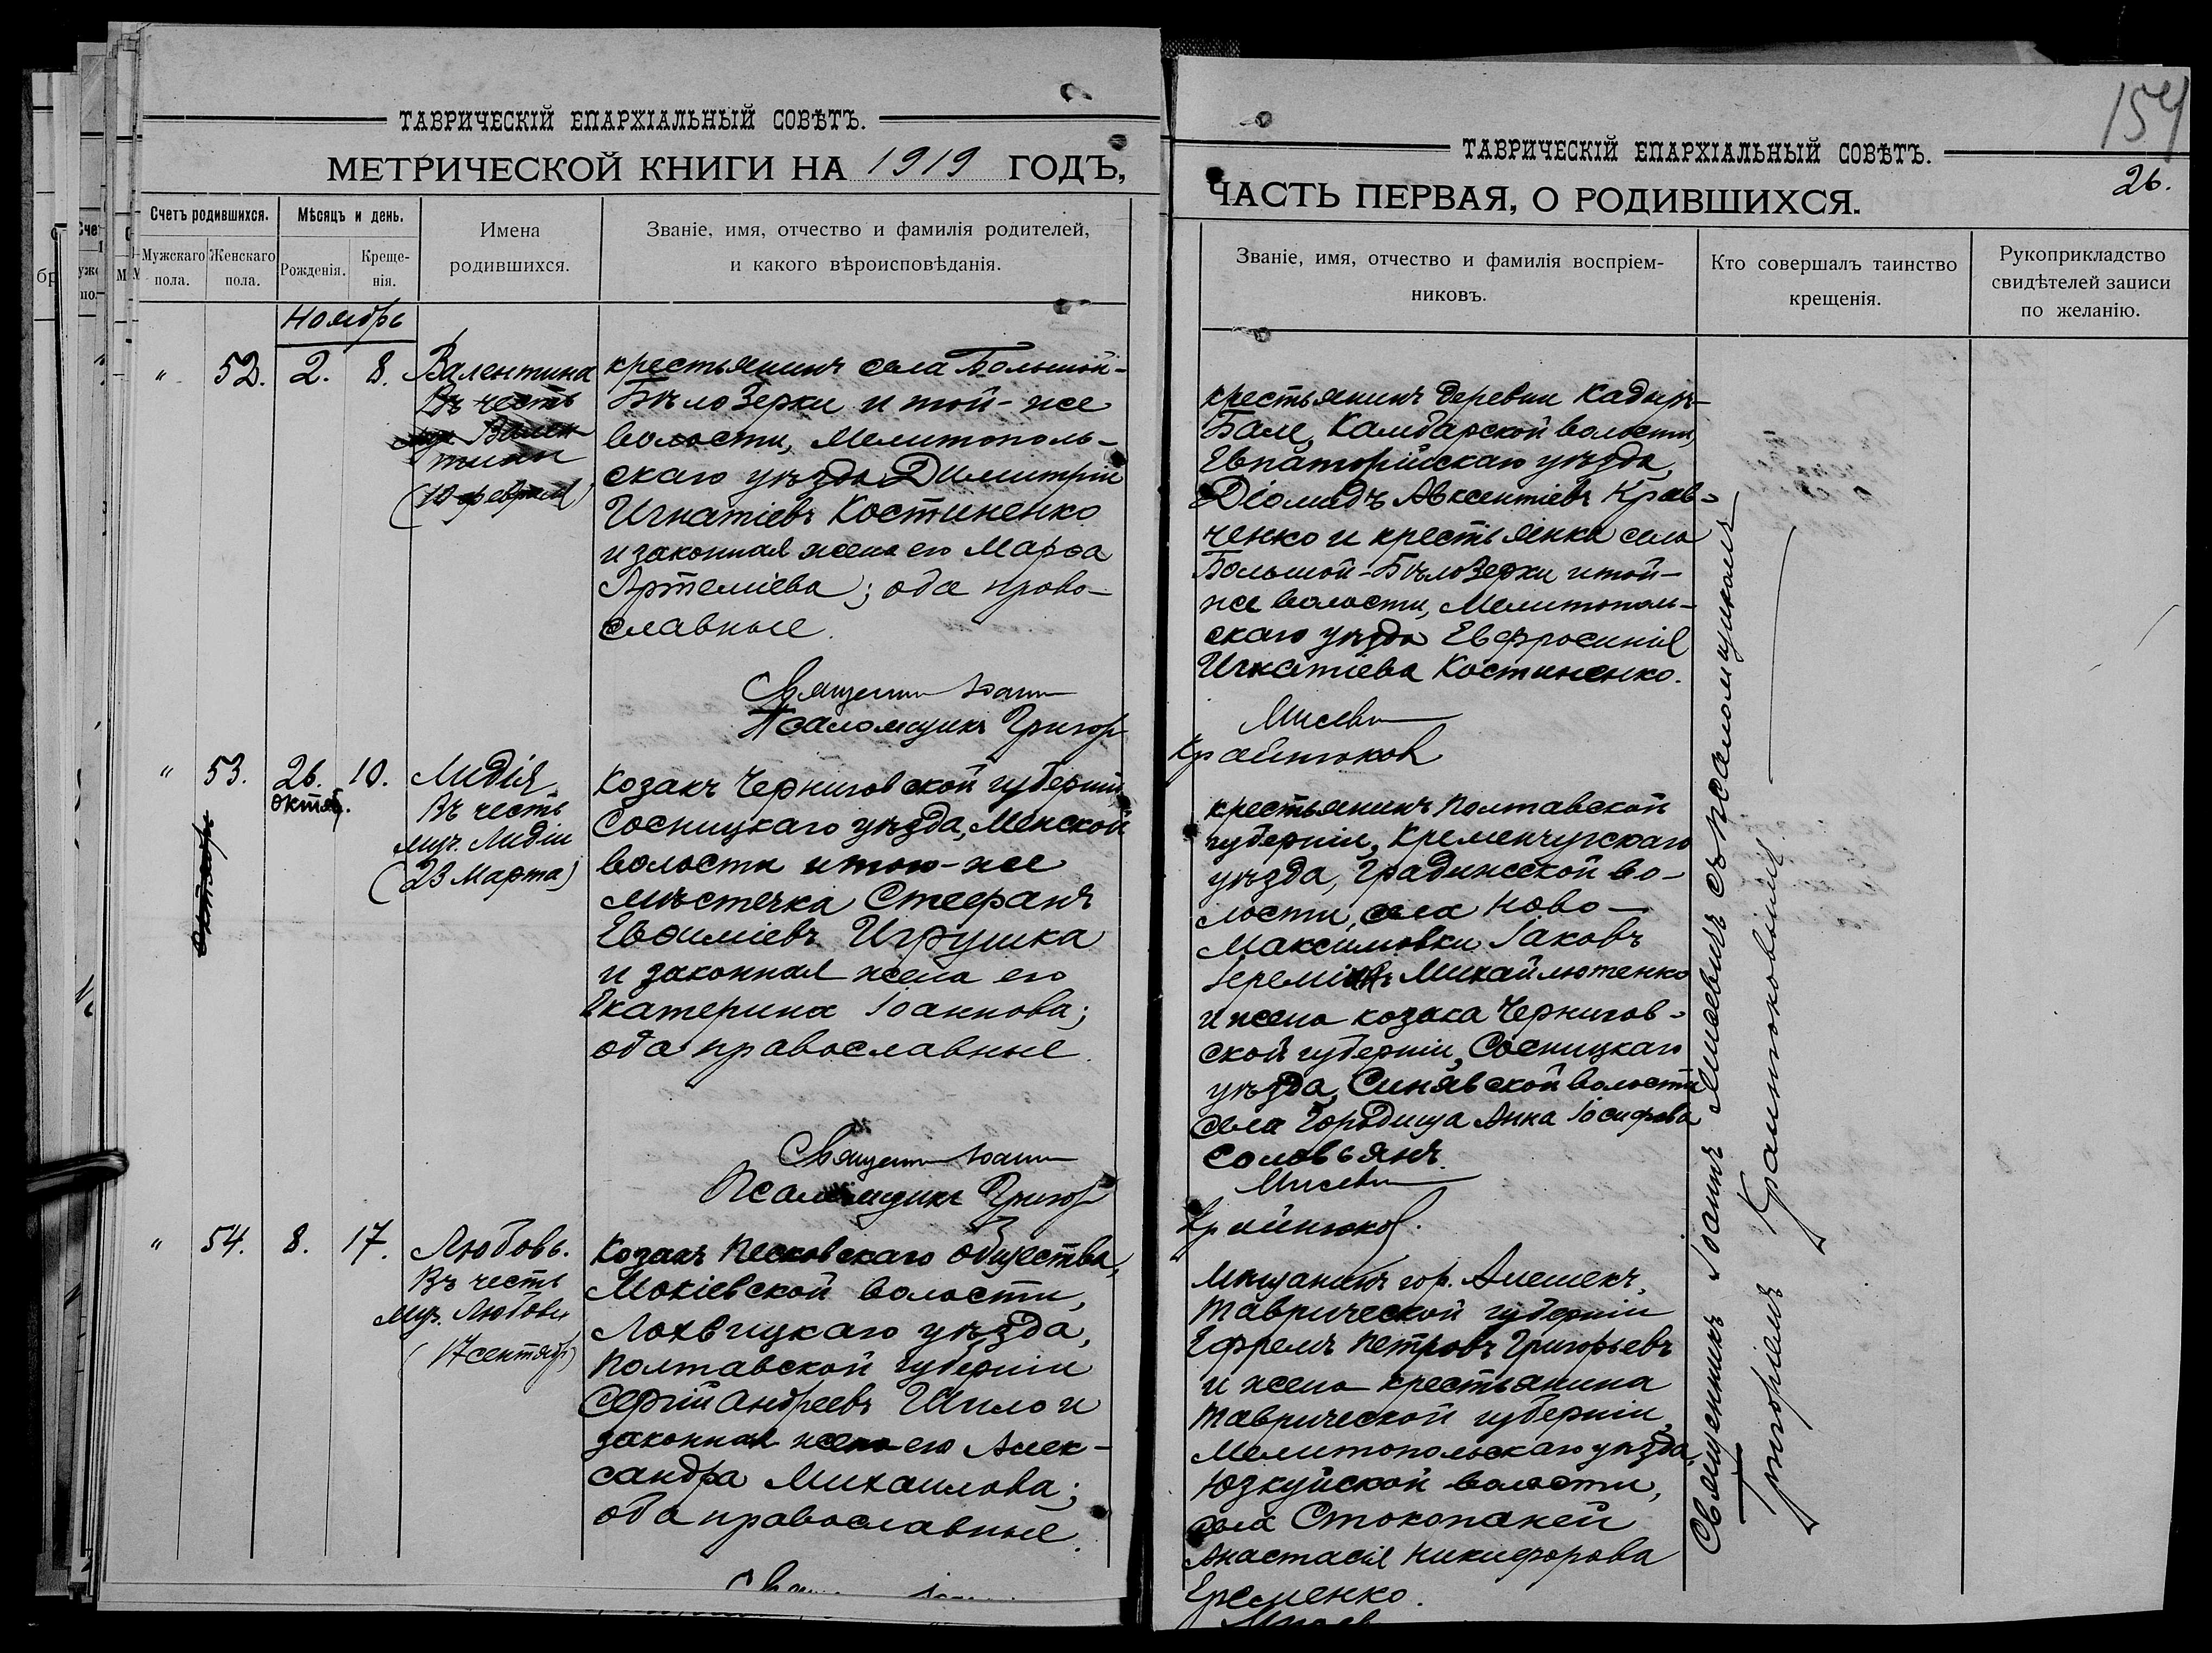 ТАВРИЧЕСКІЙ ЕПАРХІАЛЬНЫЙ СОВѢТЪ.
МЕТРИЧЕСКОЙ КНИГИ НА 1919 ГОДЪ,
Счетъ родившихся.
Мѣсяцъ и день.
Имена
родившихся.
Званіе, имя, отчество и фамилія родителей,
и какого вѣроисповѣданія.
Мужскаго
пола.
Женскаго
пола.
Рожденія.
Креще-
нія.
Ноябрь
" 52. 2. 8.
Валентина
Въ честь
муч. Вален-
тины
(10 февраля)
крестьянинъ села Большой-
Бѣлозерки и той-же
волости, Мелитополь-
скаго уѣзда Димитрій
Игнатіевъ Костиненко
и законная жена его Марѳа
Артеміева; оба право-
славные.
Священникъ Іоаннъ
Псаломщикъ Григор
" 53. 26. 10.
октяб.
октябрь
Лидія
Въ честь
муч. Лидіи
(23 Марта)
Козакъ Черниговской губерніи
Сосницкаго уѣзда, Менской
волости и того-же
мѣстечка Стефанъ
Евѳиміевъ Игрушка
и законная жена его
Екатерина Іоаннова;
оба православные.
Священникъ Іоаннъ
Псаломщикъ Григор
" 54. 8. 17.
Любовь.
Въ честь
муч. Любови
(17 сентября)
Козакъ Песковскаго общества,
Мокіевской волости,
Лохвицкаго уѣзда,
Полтавской губерніи
Сергій Андреевъ Шило и
законная жена его Алек-
сандра Михаилова;
оба православные.
154
26.
ТАВРИЧЕСКІЙ ЕПАРХІАЛЬНЫЙ СОВѢТЪ.
ЧАСТЬ ПЕРВАЯ, О РОДИВШИХСЯ.
Званіе, имя, отчество и фамилія воспріем-
никовъ.
Кто совершалъ таинство
крещенія.
Рукоприкладство
свидѣтелей записи
по желанію.
крестьянинъ деревни Кадыръ-
Бале, Камбарской волости,
Евпаторійскаго уѣзда,
Діомидъ Авксентіевъ Крав-
ченко и крестьянка села
Большой-Бѣлозерки и той-
же волости, Мелитополь-
скаго уѣзда Евфросинія
Игнатіева Костиненко.
Мисевич
Крайнюков
крестьянинъ Полтавской
губерніи, Кременчугскаго
уѣзда, Градижской во-
лости, села Ново-
Максимовки Іаковъ
Іереміевъ Михайлютенко
и жена козака Чернигов-
ской губерніи, Сосницкаго
уѣзда, Синявской волости
села Городища Анна Іосифова
Соловьянъ.
Мисевич
Крайнюков.
Мѣщанинъ гор. Алешекъ,
Таврической губерніи
Ефремъ Петровъ Григорьевъ
и жена крестьянина
Таврической губерніи,
Мелитопольскаго уѣзда,
Юзкуйской волости,
села Стокопаней
Анастасія Никифорова
Еременко.
Священникъ Іоаннъ Мисевичъ съ псаломщикомъ
Григоріемъ Крайнюковымъ.